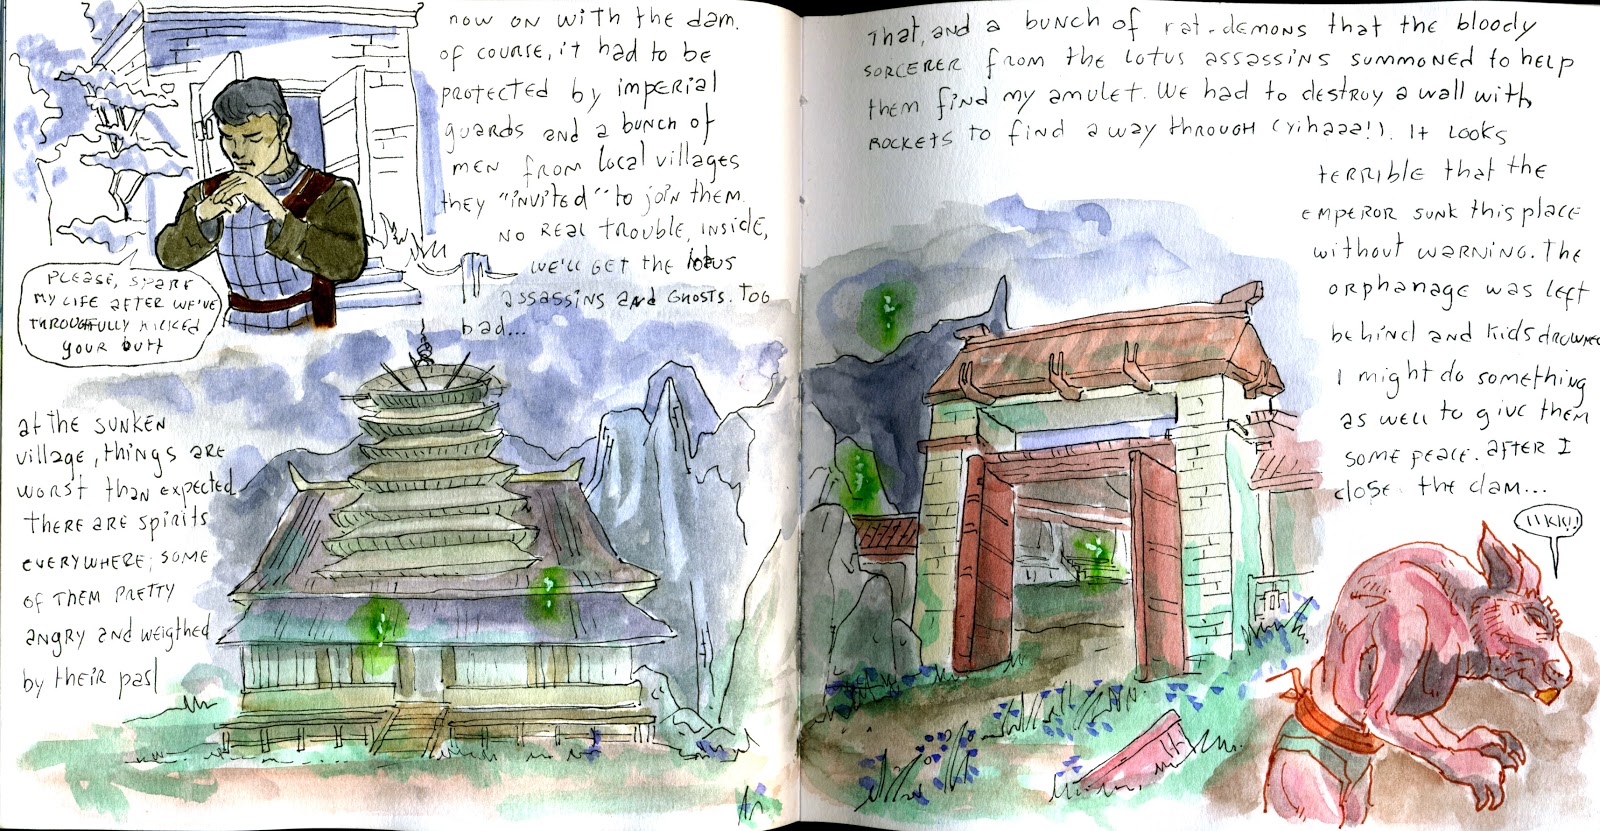 now on with the dam.
of course, it had to be
protected by imperial
guards and a bunch of
men from local villages
they "invited" to join them.
no real trouble, inside,
we'll get the lotus
assassins and ghosts. too
bad...
please, spare
my life after we've
throughfully kicked
your butt
at the sunken
village, things are
worst than expected.
there are spirits
everywhere; some
of them pretty
angry and weigthed
by their past
That, and a bunch of rat-demons that the bloody
sorcerer from the lotus assassins summoned to help
them find my amulet. We had to destroy a wall with
rockets to find a way through (yihaaa!). It looks
terrible that the
emperor sunk this place
without warning. The
orphanage was left
behind and kids drowned
I might do something
as well to give them
some peace. after I
close the dam...
iikk!!